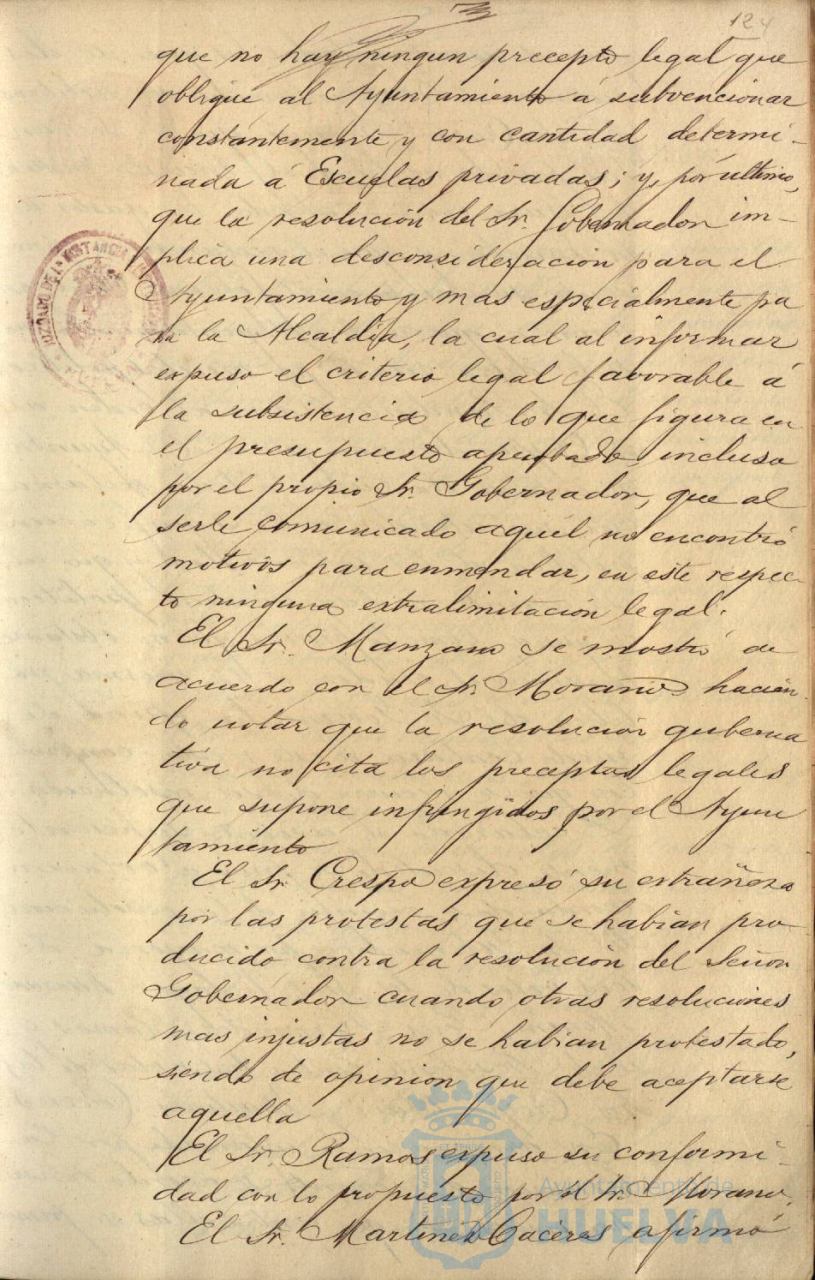 124
que no hay ningun precepto legal que
obligue al Ayuntamiento á subvencionar
constantemente y con cantidad determi-
nada á Escuelas privadas; y, por último,
que la resolución del Sr. Gobernador im-
plica una desconsideración para el
Ayuntamiento y mas especialmente pa
ra la Alcaldía, la cual al informar
expuso el criterio legal favorable á
la subsistencia de lo que figura en
el presupuesto aprobado, incluso
por el propio Sr. Gobernador, que al
serle comunicado aquél no encontró
motivos para enmendar, en este respec-
to ninguna extralimitación legal.
El Sr. Manzano se mostró de
acuerdo con el Sr. Morano hacien-
do notar que la resolución guberna
tiva no cita los preceptos legales
que supone infringidos por el Ayun
tamiento
El Sr. Crespo expresó su extrañeza
por las protestas que se habian pro-
ducido contra la resolución del Señor
Gobernador cuando otras resoluciones
mas injustas no se habian protestado,
siendo de opinion que debe aceptarse
aquella
El Sr. Ramos expuso su conformi-
dad con lo propuesto por el Sr. Morano.
El Sr. Martinez Caceres afirmó
Ayuntamiento de
HUELVA